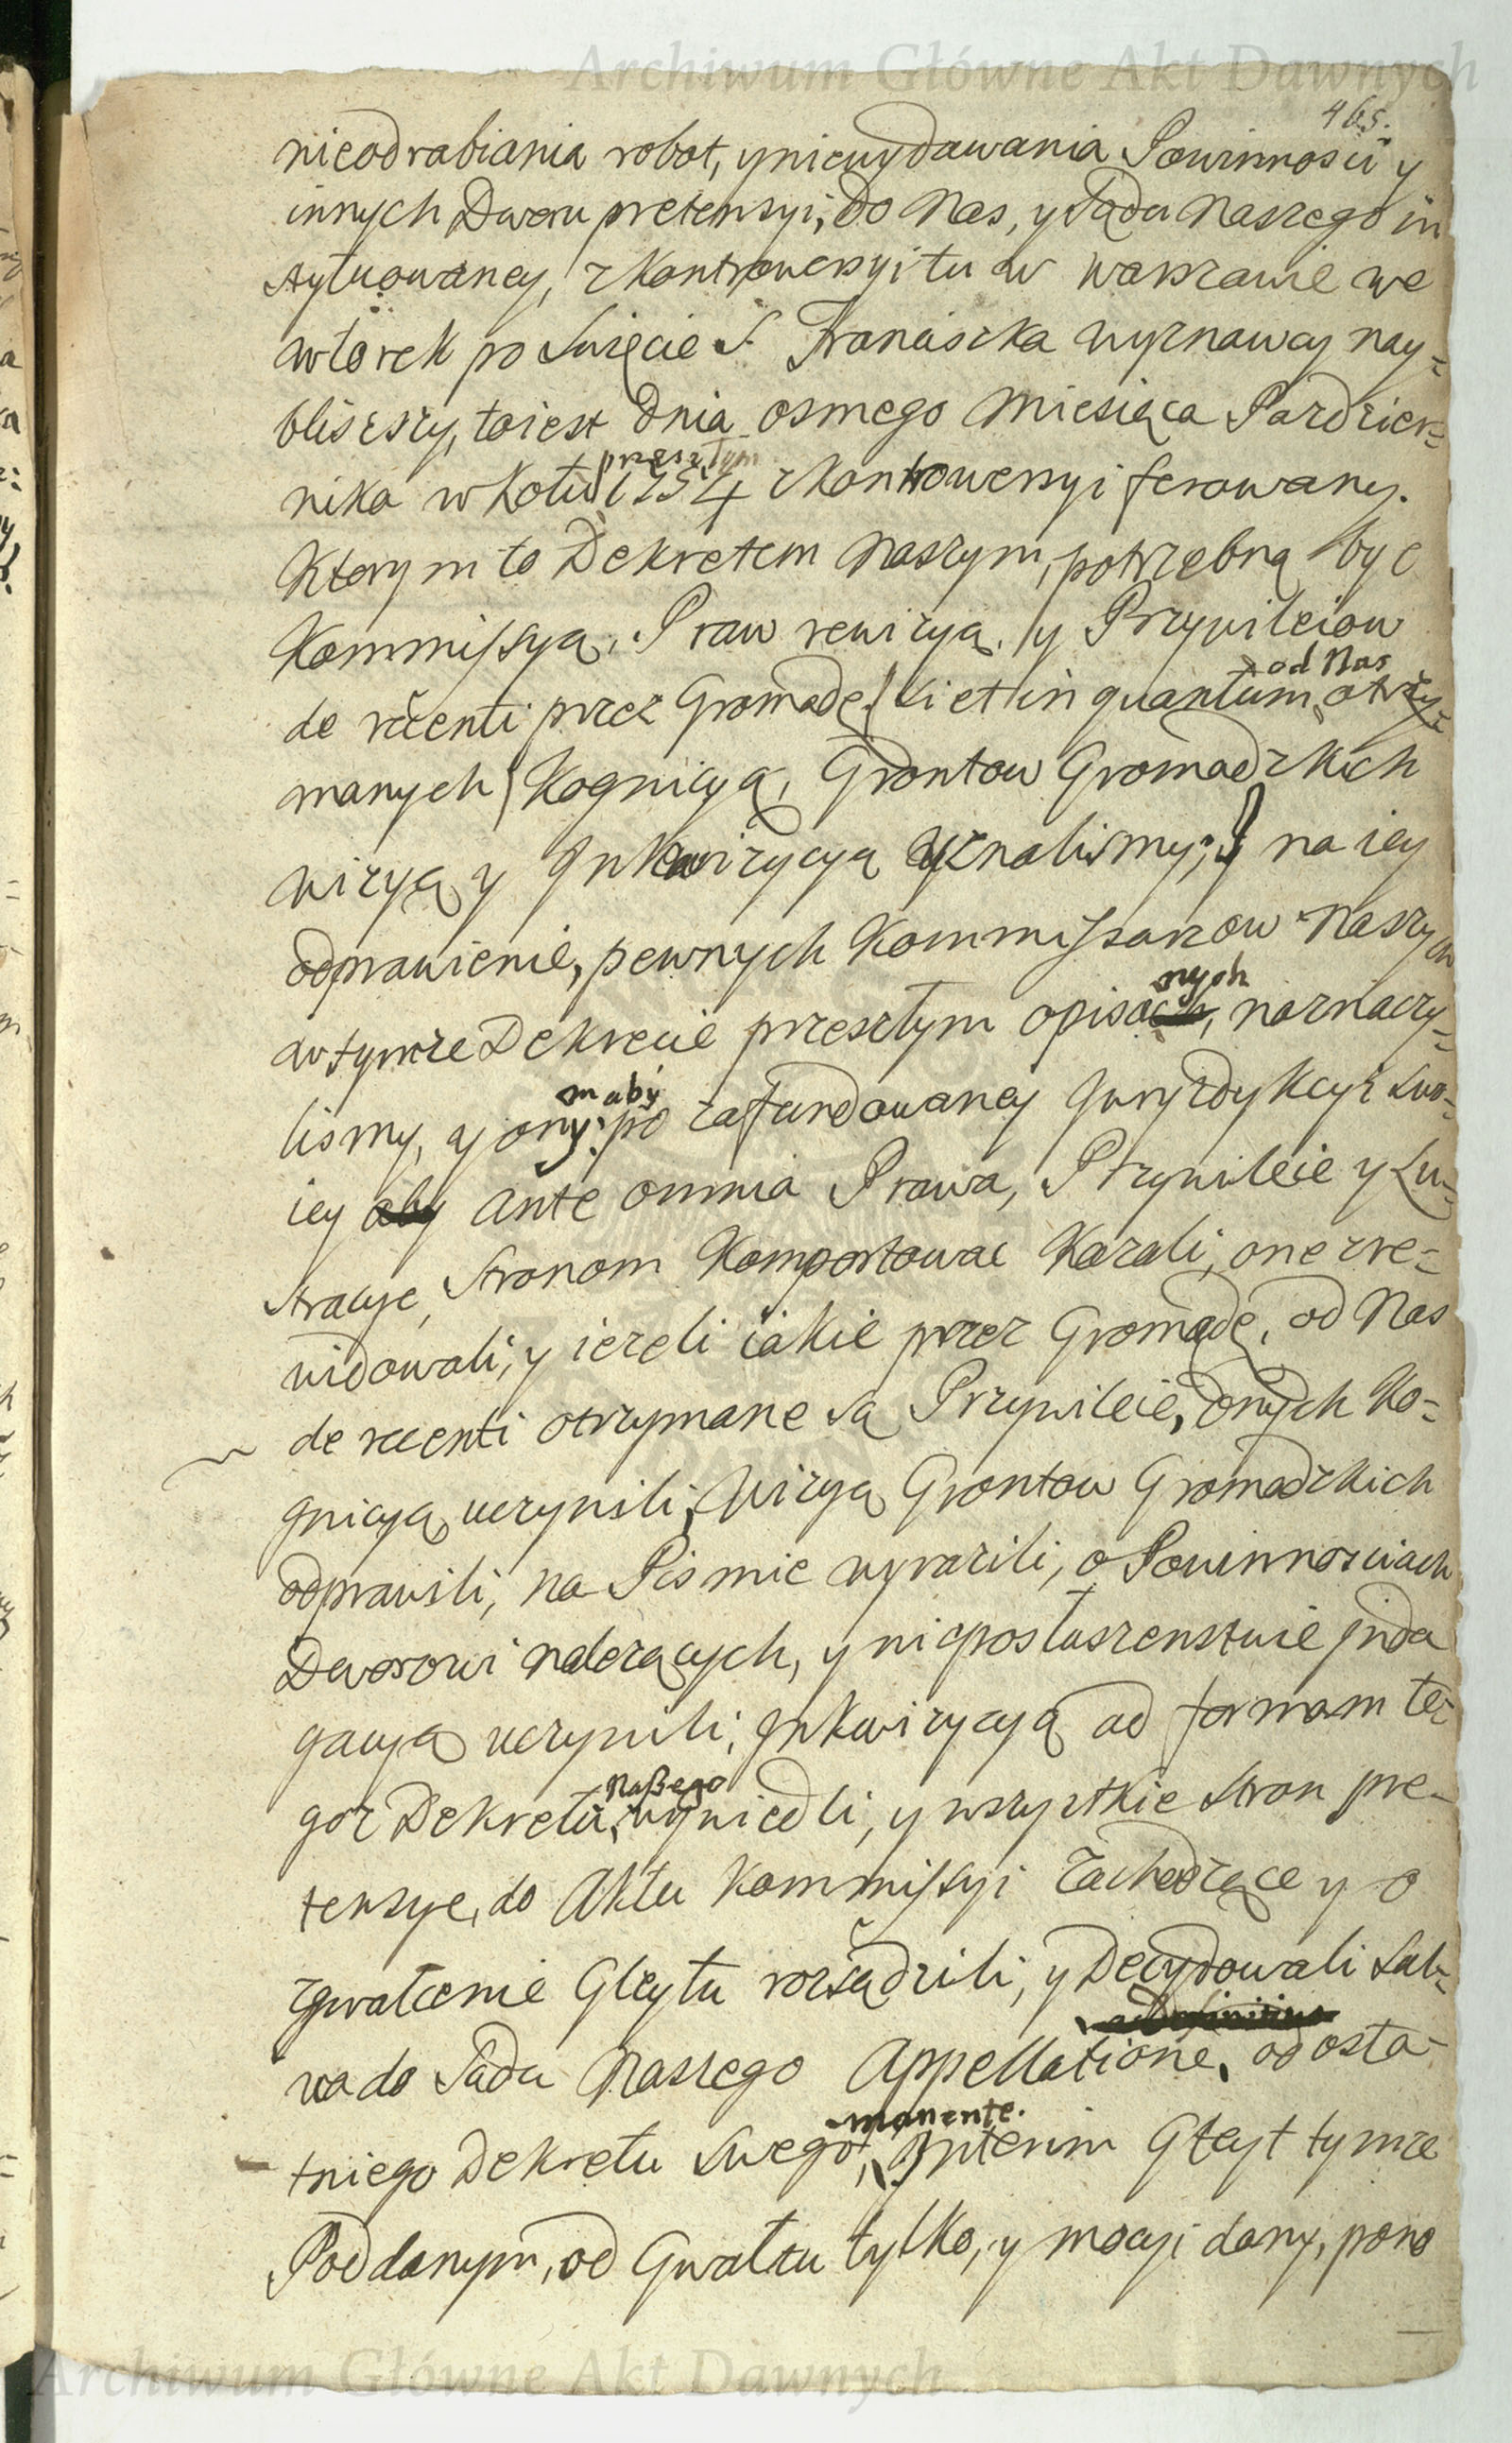 Archiwum Główne Akt Dawnych
465.
nieodrabiania robot, y niewydawania Powinnosci y
innych Dworu pretensyi, Do Nas, y Sądu Naszego in
stytuowaney, z kontrowersyi tu w Warszawie we
wtorek po Swięcie S. Franciszka wyznawcy nay-
bliszszy, to iest Dnia osmego Miesiąca Pazdzier=
przeszłym
nika w Roku 1754 z kontrowersyi ferowany.
Ktorym to Dekretem Naszym, potrzebną byc
Kommissyą, Praw rewizyą, y Przywileiow
od Nas
de recenti przez Gromadę (si et in quantum otrzy=
manych) Kognicyą, Grontow Gromadzkich
wizyą y Inkwizycyą uznalismy; y na iey
odprawienie, pewnych Kommissarzow Naszych
nych
w tymze Dekrecie przeszłym opisach, naznaczy-
m aby
lismy, y ony: po zafundowaney Juryzdykcyi swo-
iey aby ante omnia Prawa, Przywileie y Lu-
stracye, stronom Komportowac Kazali, one zre=
widowali, y iezeli iakie przez Gromadę, od Nas
de recenti otrzymane są Przywileie, onych Ko=
gnicyą uczynili, Wizyą Grontow Gromadzkich
odprawili, na Pismie wyrazili, o Powinnosciach
Dworowi nalezących, y nieposłuszenstwie Inda
gacyą uczynili, Inkwizycyą ad formam te-
Naßego
goz Dekretu, wywiedli, y wszystkie stron pre-
tensye, do Aktu Kommissyi zachodzące y o
zgwałcenie Gleytu rozsądzili, y Decydowali sal-
a Definitiva
va do Sądu Naszego Appellatione, od osta-
manente.
tniego Dekretu swego, Interim Gleyt tymze
Poddanym, od Gwałtu tylko, y mocyi dany, pono
Archiwum Główne Akt Dawnych